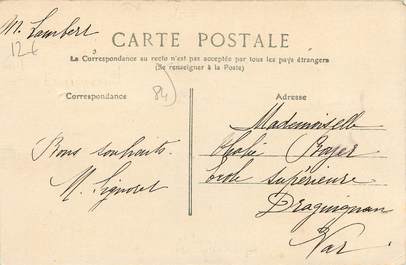 M. Lambert
12 €
CARTE POSTALE
La Correspondance au recto n'est pas acceptée par tous les pays étrangers
(Se renseigner à la Poste)
Correspondance
84
Bons souhaits.
M. Signoret
Adresse
Mademoiselle
Ecole Supérieure
Draguignan
Var